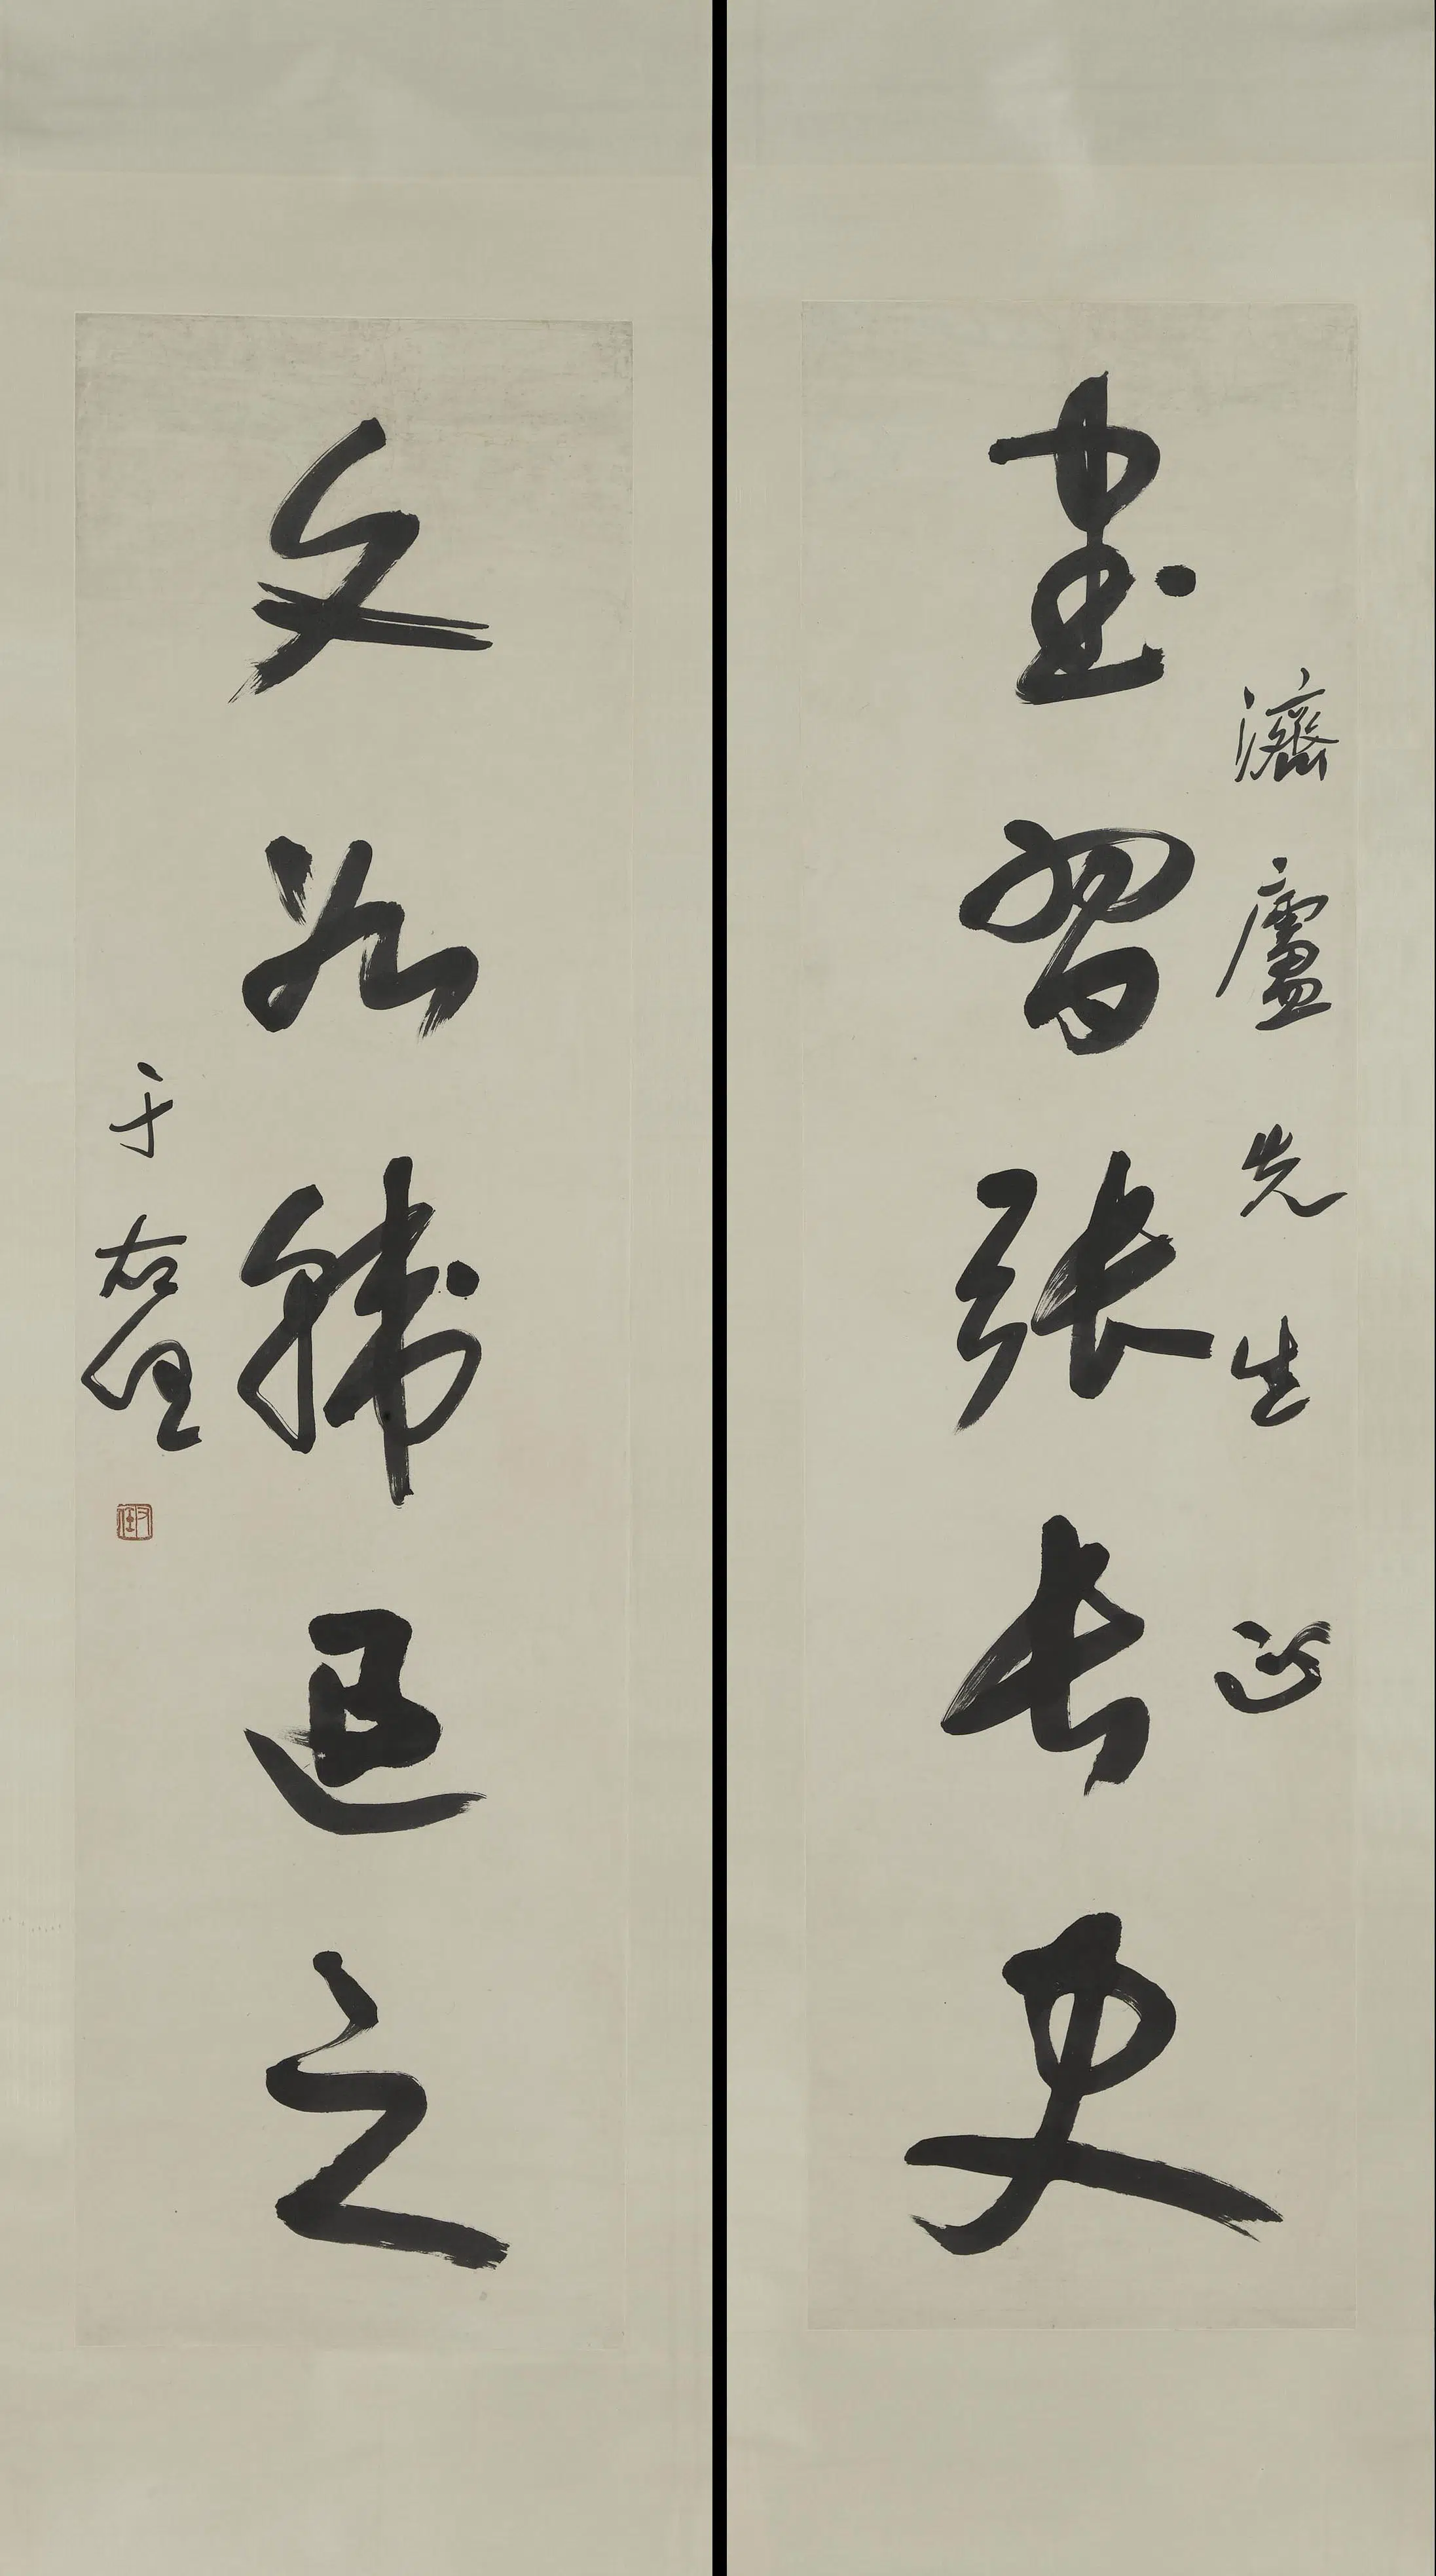 濟廬先生正
書習張長史
文如韓退之
于右任
右任